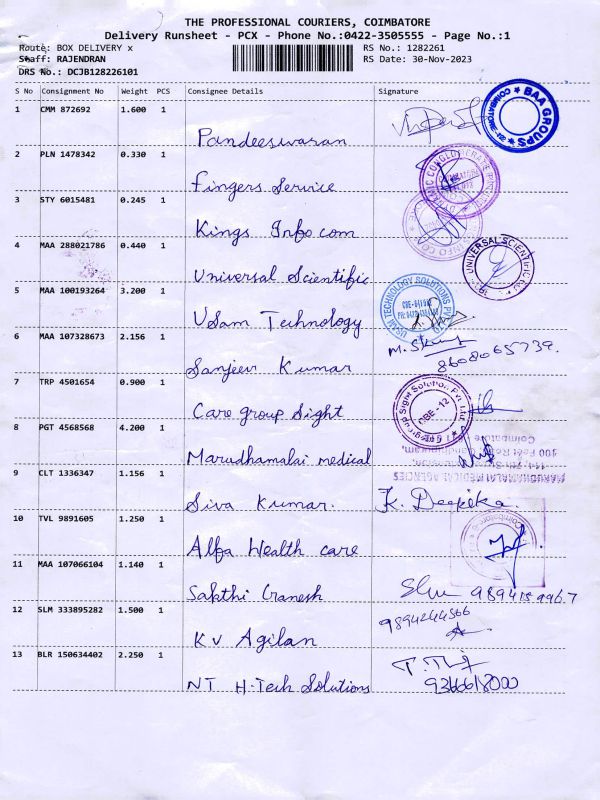 THE PROFESSIONAL COURIERS, COIMBATORE
Delivery Runsheet - PCX - Phone No.:0422-3505555 - Page No.:1
Route: BOX DELIVERY x RS No.: 1282261
Staff: RAJENDRAN RS Date: 30-Nov-2023
DRS No.: DCJB128226101
S No Consignment No Weight PCS Consignee Details Signature
1 CMM 872692 1.600 1
Pandeeswaran
BAA GROUPS
2 PLN 1478342 0.330 1
Fingers Service
3 STY 6015481 0.245 1
Kings Info com
4 MAA 288021786 0.440 1
Universal Scientific
UNIVERSAL SCIENTIFIC
5 MAA 100193264 3.200 1
USam Technology
USAM TECHNOLOGY SOLUTIONS
6 MAA 107328673 2.156 1
Sanjeev Kumar
8608065739.
7 TRP 4501654 0.900 1
Care group Sight
Care group Sight Solution Pvt Ltd
CBE-12
8 PGT 4568568 4.200 1
Marudhamalai medical
MARUDHAMALAI MEDICAL AGENCIES
Coimbatore
9 CLT 1336347 1.156 1
Siva Kumar. K. Deepika.
10 TVL 9891605 1.250 1
Alfa Health care
11 MAA 107066104 1.140 1
Sakthi Ganesh
12 SLM 333895282 1.500 1
9894244566
KV Agilan
13 BLR 150634402 2.250 1
NT H-Tech Solutions 9366618000